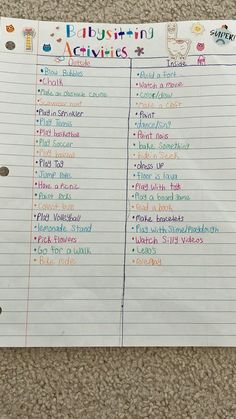 Babysitting
Activities
Outside
Inside
SUPER!
• Blow Bubbles
• Chalk
• Make an obstacle course
• Scavenger hunt
• Play in Sprinkler
• Play Tennis
• Play basketball
• Play Soccer
• Play Tag
• Jump rope
• Have a Picnic
• Paint rocks
• Play Volleyball
• lemonade Stand
• Pick flowers
• Go for a walk
• Bike rides
• Build a fort
• Watch a movie
• color/draw
• Make a craft
• Paint
• dance/sing
• Paint nails
• bake Something
• hide n Seek
• dress UP
• floor is lava
• Play with toys
• Play a board game
• read a book
• Make bracelets
• Play with Slime/Playdough
• Watch Silly Videos
• Lego's
• roleplay